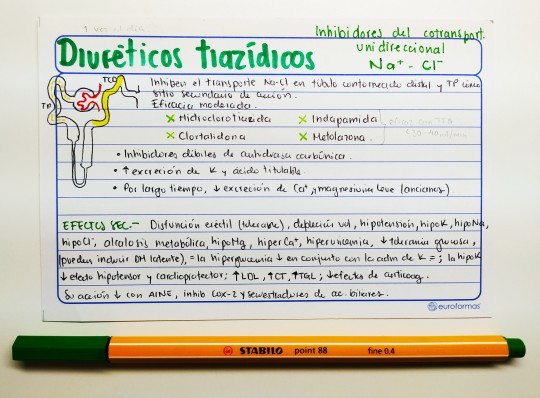 1 vez al día
Inhibidores del cotransport.
unidireccional
Na⁺ - Cl⁻
Diuréticos tiazídicos
TCD
TP
Inhiben el transporte Na-Cl en túbulo contorneado distal y TP como
sitio secundario de acción.
Eficacia moderada.
× Hidroclorotiazida × Indapamida
× Clortalidona × Metolazona
• Inhibidores débiles de anhidrasa carbónica.
• ↑ excreción de K y ácido titulable.
• Por largo tiempo, ↓ excreción de Ca⁺ y magnesiuria leve (ancianos)
EFECTOS SEC.- Disfunción eréctil (tolerable), depleción vol, hipotensión, hipoK, hipoNa,
hipoCl, alcalosis metabólica, hipoMg, hiperCa⁺, hiperuricemia, ↓ tolerancia glucosa,
(pueden inducir DM latente), = la hiperglucemia ↓ en conjunto con la adm de K = ; la hipoK
↓ efecto hipotensor y cardioprotector; ↑ LDL, ↑CT, ↑TGL; ↓ efectos de anticoag.
Su acción ↓ con AINE, inhib COX-2 y secuestradores de ac. biliares.
euroformas
STABILO point 88 fine 0,4